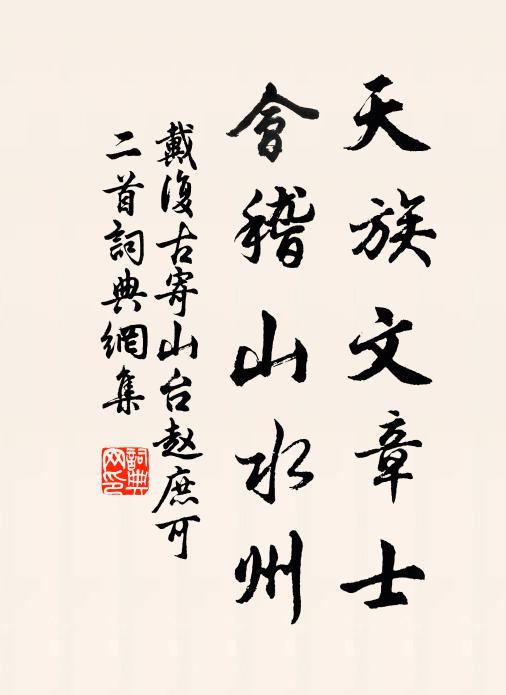 天族文章士
會稽山水州
戴復古寄山台赵庶可
二首詞典網集
詞典网印